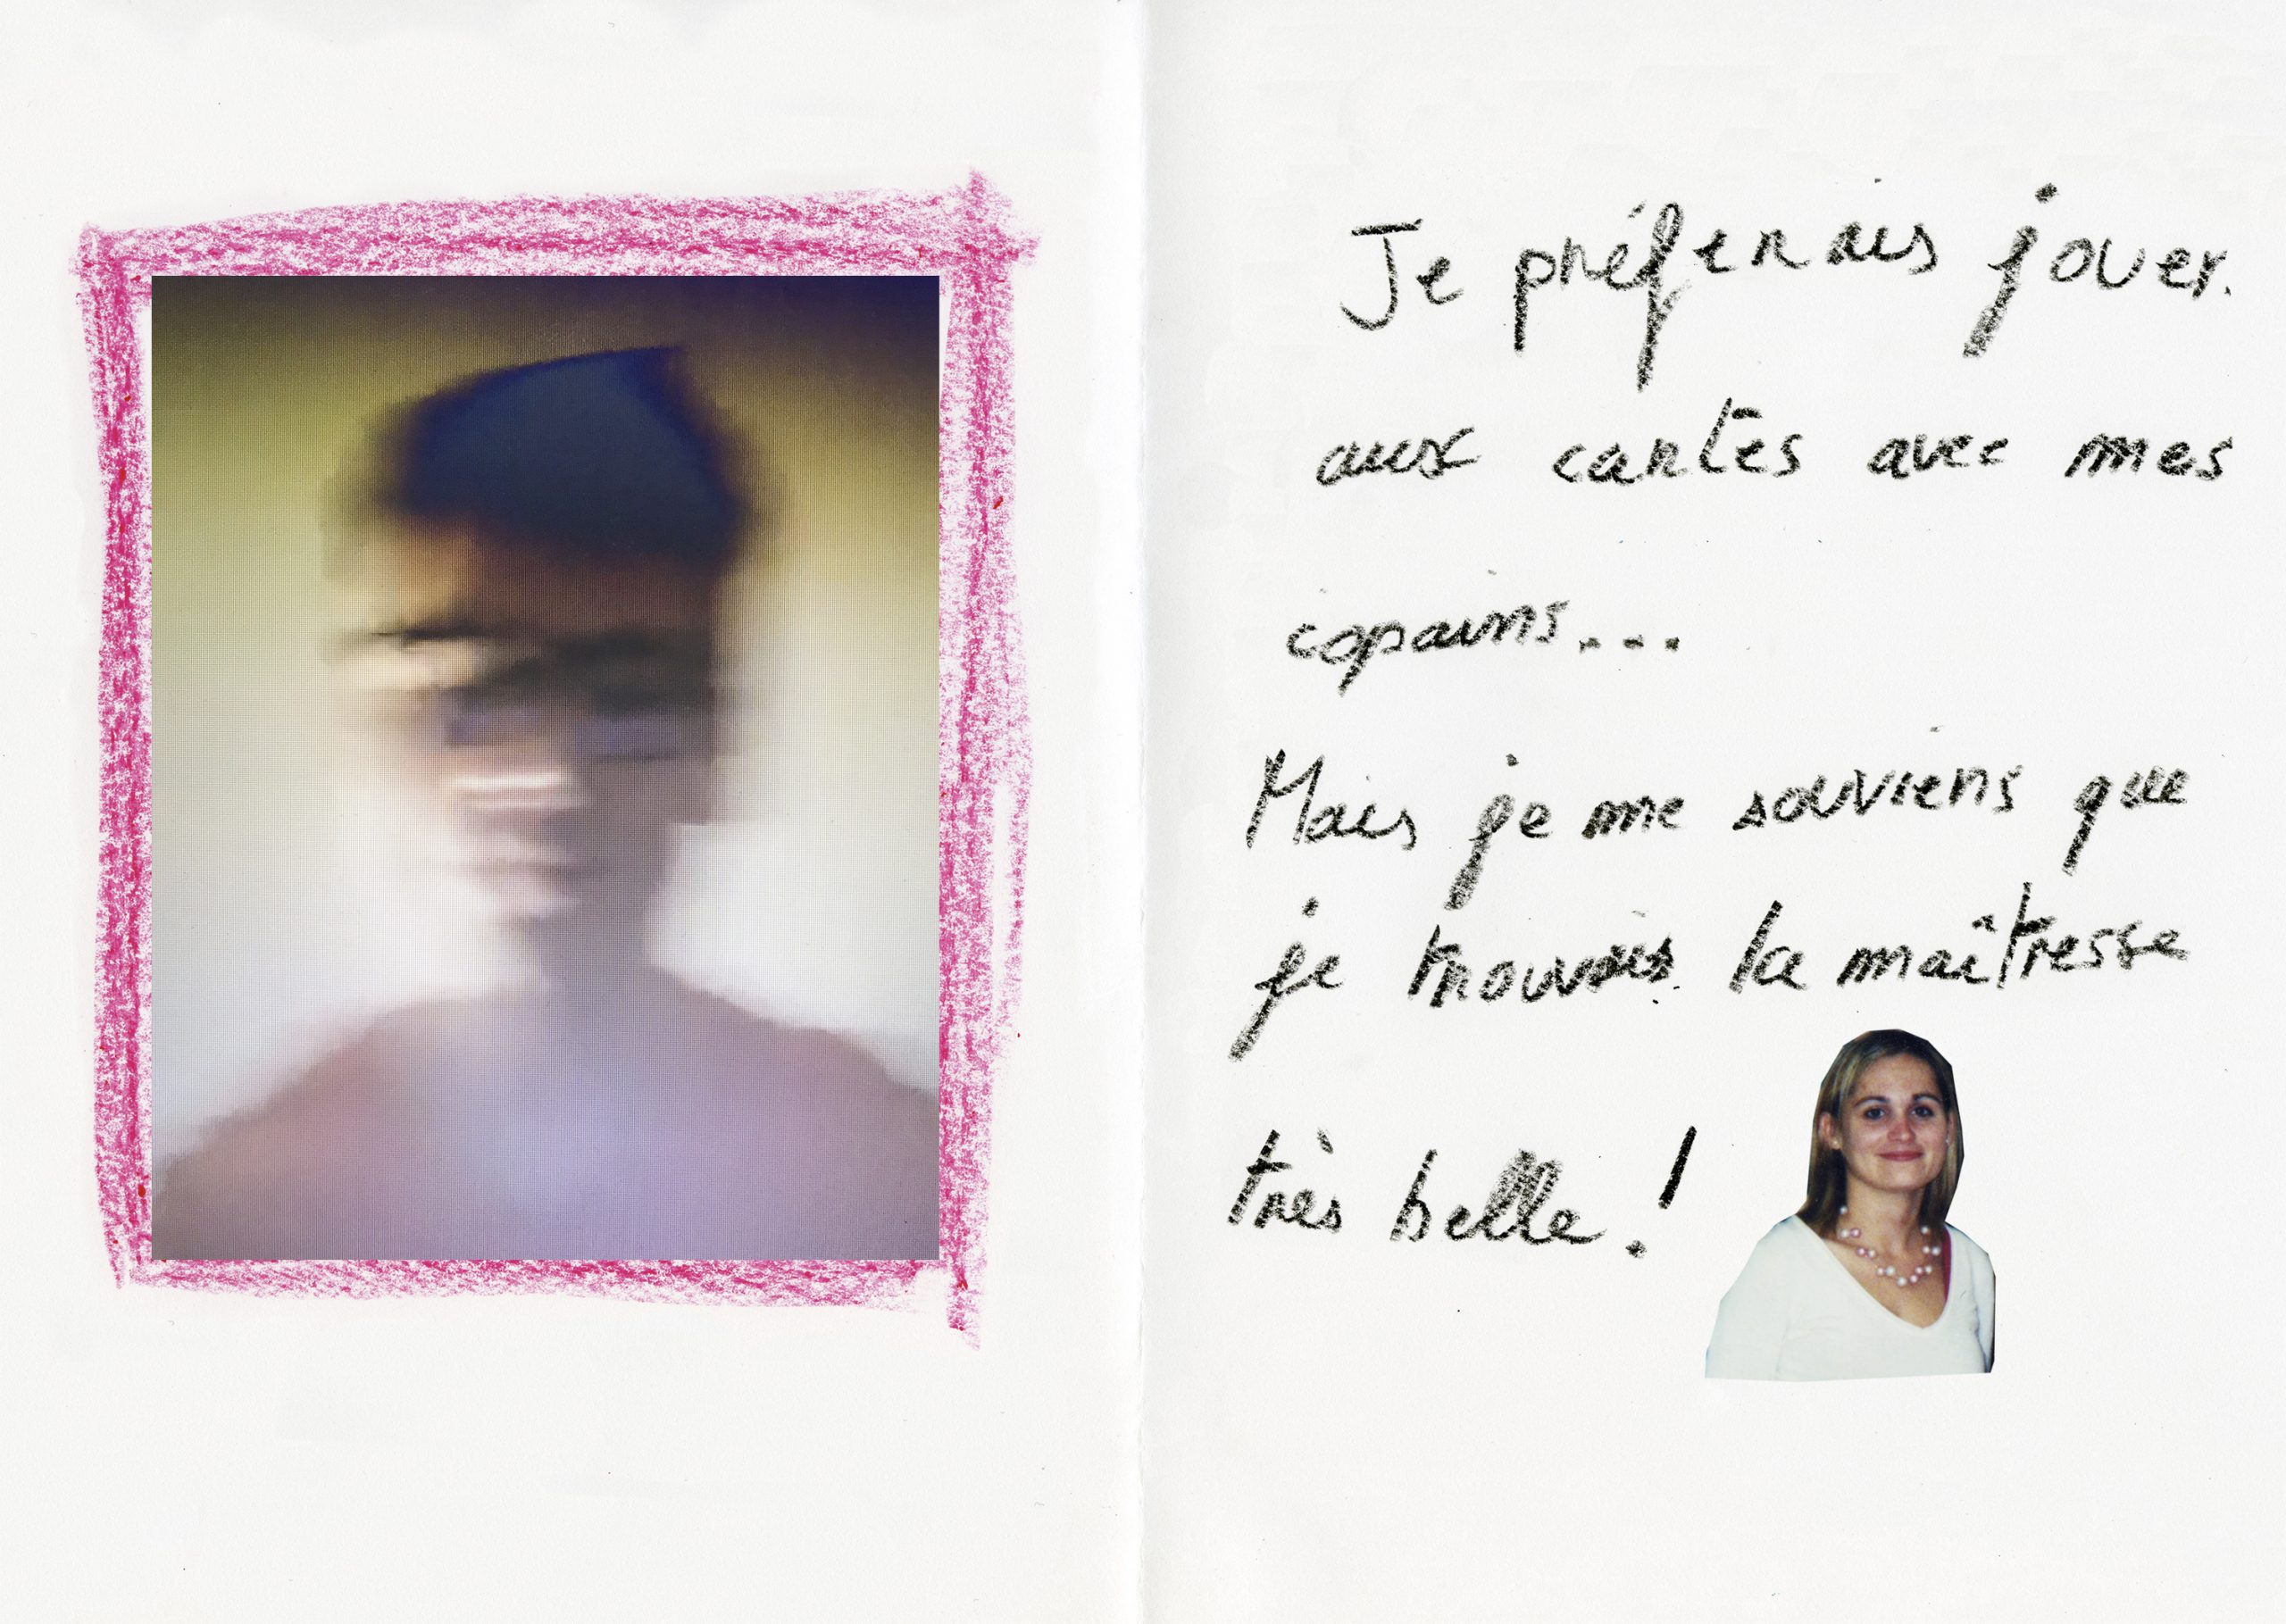 Je préferais jouer.
aux cartes avec mes
copains...
Mais je me souviens que
je trouvais la maîtresse
très belle.!